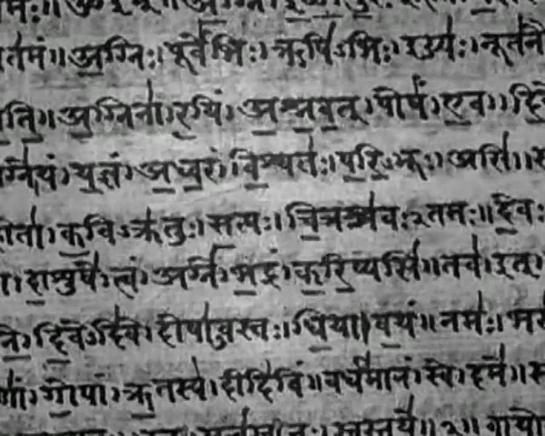 तमं॥ अ॒ग्निः। पूर्वे॑भिः। ऋषि॑ऽभिः। ईड्यः॑। नूत॑नैः
ति॒॥ अ॒ग्निना॑। र॒यिं। अ॒श्न॒व॒त्। पोषं॑। ए॒व। दि॒वे
अग्ने॑। यं। य॒ज्ञं। अ॒ध्व॒रं। वि॒श्वतः॑। प॒रि॒ऽभूः। असि॑॥
होता॑। क॒विऽक्र॑तुः। स॒त्यः। चि॒त्रश्र॑वःऽतमः॥ दे॒वः
दा॒शुषे॑। त्वं। अग्ने॑। भ॒द्रं। क॒रि॒ष्यसि॑॥ तव॑। इत्।
दि॒वेऽदि॑वे। दोषा॑ऽवस्तः। धि॒या। व॒यं॥ नमः॑। भर
गो॒पां। ऋ॒तस्य॑। दीदि॑विं॥ वर्ध॑मानं। स्वे। दमे॑॥